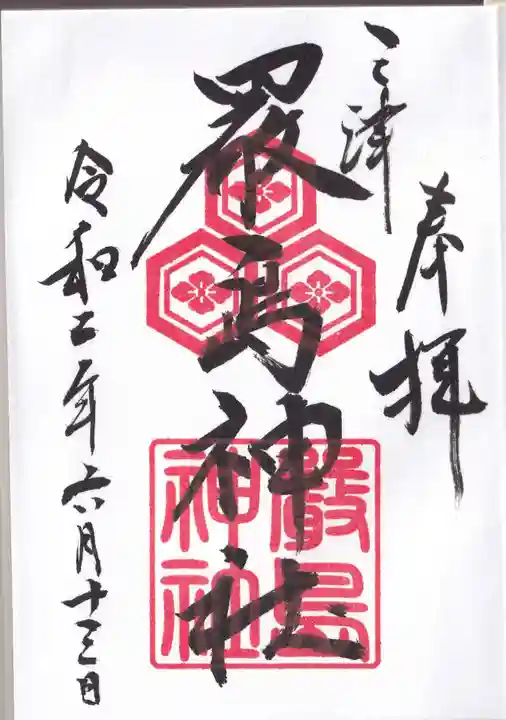 奉拝
三津
厳島神社
嚴島
神社
令和二年六月十三日